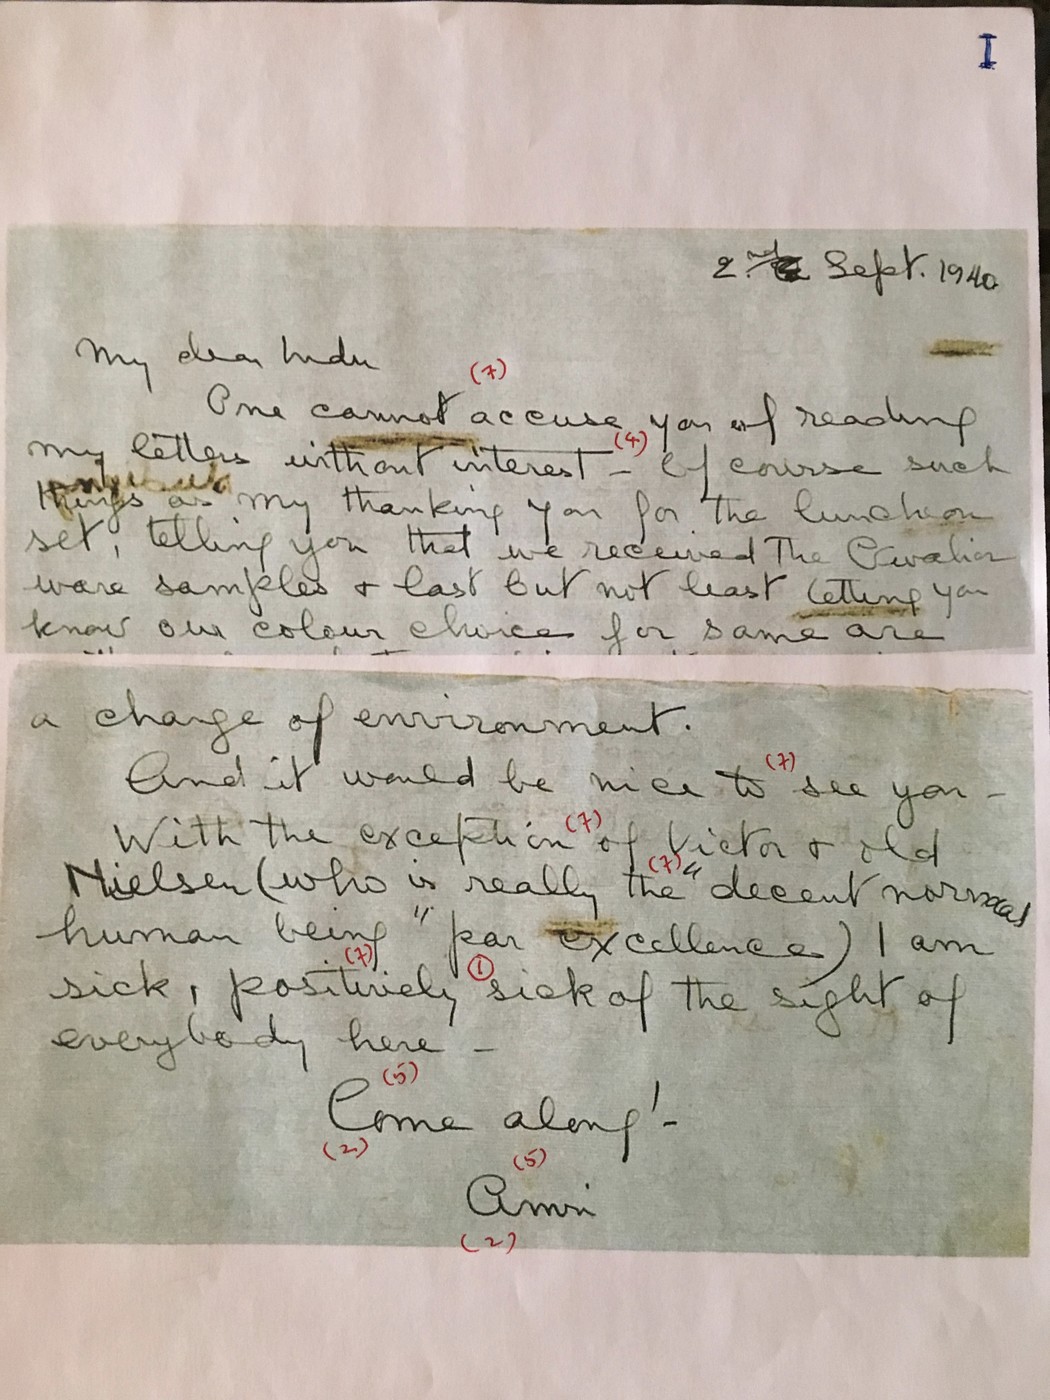 I
2nd Sept. 1940
My dear Indu
(7)
One cannot accuse you of reading
(4)
my letters without interest - Of course such
things as my thanking you for the luncheon
set, telling you that we received The
ware samples & last but not least letting you
know our colour choice for same are
a change of environment.
(7)
And it would be nice to see you -
(7)
With the exception of Victor & old
(7)
Nielsen (who is really the "decent normal
human being" par excellence) I am
(7) (1)
sick, positively sick of the sight of
everybody here -
(5)
Come along! -
(2) (5)
Amri
(2)